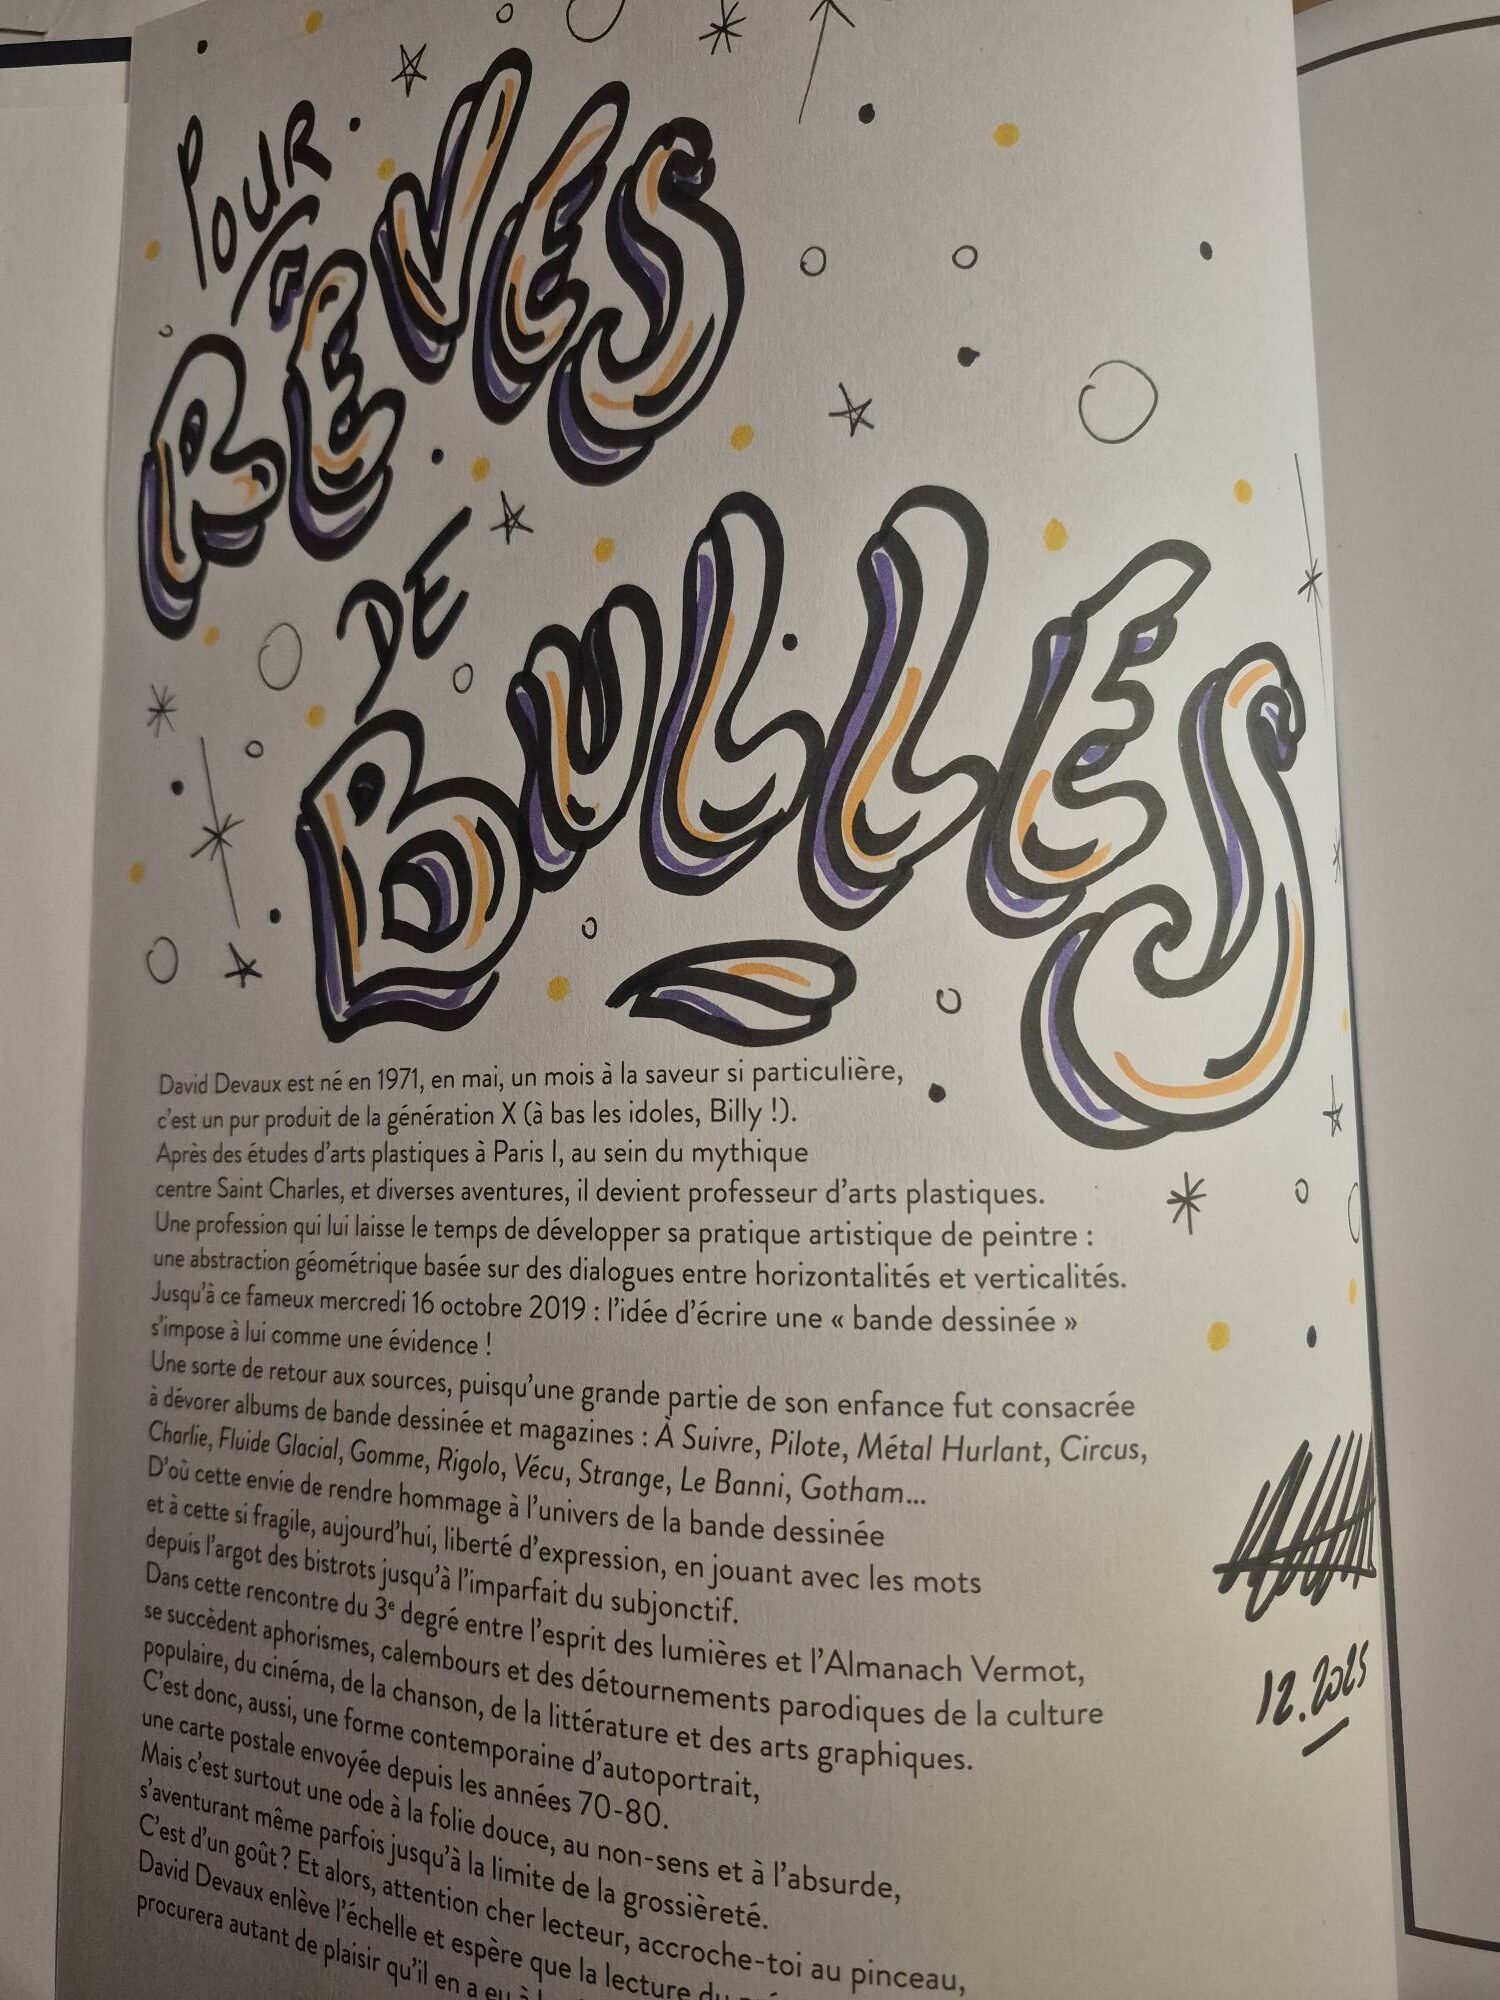 POUR
RÊVES
DE
BULLES
David Devaux est né en 1971, en mai, un mois à la saveur si particulière,
c'est un pur produit de la génération X (à bas les idoles, Billy !).
Après des études d'arts plastiques à Paris I, au sein du mythique
centre Saint Charles, et diverses aventures, il devient professeur d'arts plastiques.
Une profession qui lui laisse le temps de développer sa pratique artistique de peintre :
une abstraction géométrique basée sur des dialogues entre horizontalités et verticalités.
Jusqu'à ce fameux mercredi 16 octobre 2019 : l'idée d'écrire une « bande dessinée »
s'impose à lui comme une évidence !
Une sorte de retour aux sources, puisqu'une grande partie de son enfance fut consacrée
à dévorer albums de bande dessinée et magazines : À Suivre, Pilote, Métal Hurlant, Circus,
Charlie, Fluide Glacial, Gomme, Rigolo, Vécu, Strange, Le Banni, Gotham...
D'où cette envie de rendre hommage à l'univers de la bande dessinée
et à cette si fragile, aujourd'hui, liberté d'expression, en jouant avec les mots
depuis l'argot des bistrots jusqu'à l'imparfait du subjonctif.
Dans cette rencontre du 3e degré entre l'esprit des lumières et l'Almanach Vermot,
se succèdent aphorismes, calembours et des détournements parodiques de la culture
populaire, du cinéma, de la chanson, de la littérature et des arts graphiques.
C'est donc, aussi, une forme contemporaine d'autoportrait,
une carte postale envoyée depuis les années 70-80.
Mais c'est surtout une ode à la folie douce, au non-sens et à l'absurde,
s'aventurant même parfois jusqu'à la limite de la grossièreté.
C'est d'un goût ? Et alors, attention cher lecteur, accroche-toi au pinceau,
David Devaux enlève l'échelle et espère que la lecture du
procurera autant de plaisir qu'il en a eu à
12.2025